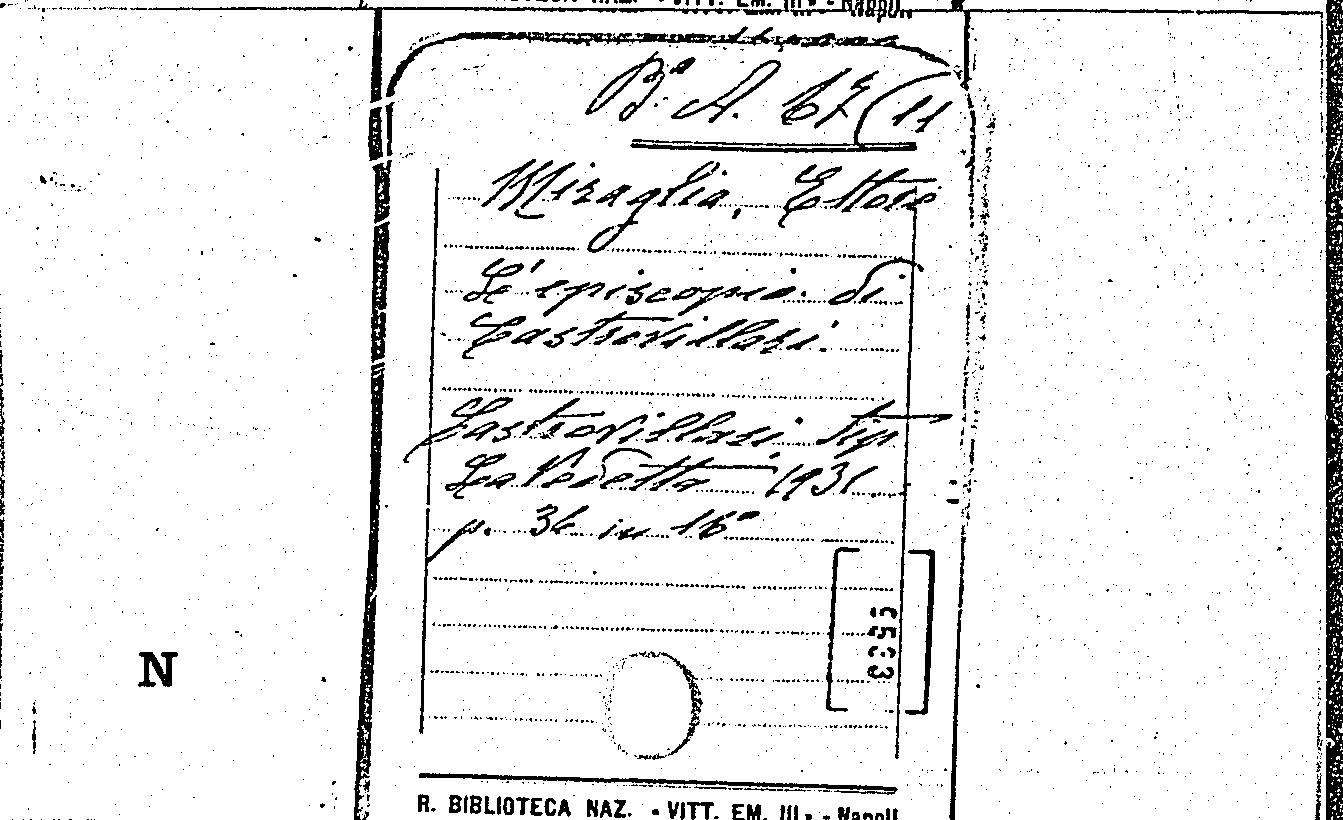 VITT. EM. III» - Napoli
Bª A. 67(11
Miraglia, Ettore
L'episcopia di
Castrovillari.
Castrovillari, Tip
La Vedetta 1931
p. 36 in 16°
N
R. BIBLIOTECA NAZ. « VITT. EM. III» - Napoli